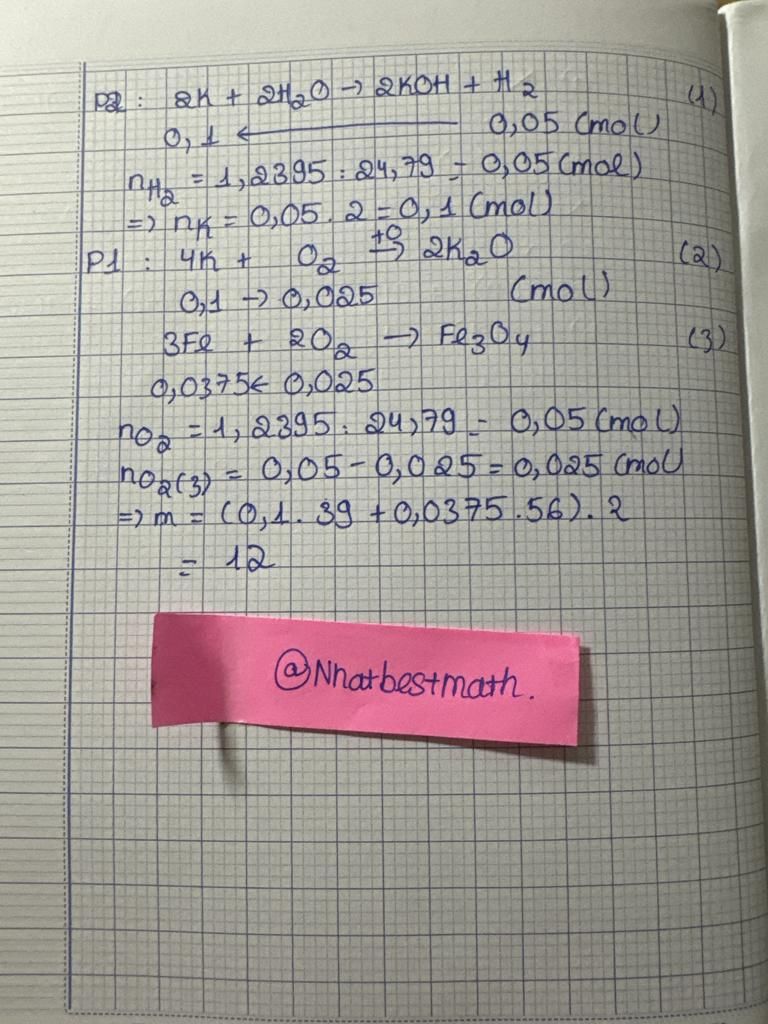 P2 : 2K + 2H₂O → 2KOH + H₂ (1)
0,1 ← 0,05 (mol)
nH₂ = 1,2395 : 24,79 = 0,05 (mol)
=> nK = 0,05 . 2 = 0,1 (mol)
P1 : 4K + O₂ +O→ 2K₂O (2)
0,1 → 0,025 (mol)
3Fe + 2O₂ → Fe₃O₄ (3)
0,0375 ← 0,025
nO₂ = 1,2395 : 24,79 = 0,05 (mol)
nO₂(3) = 0,05 - 0,025 = 0,025 (mol
=> m = (0,1 . 39 + 0,0375 . 56) . 2
= 12
@Nhatbestmath.